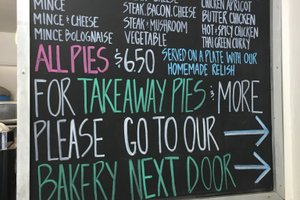 MINCE
STEAK, BACON, CHEESE
CHICKEN APRICOT
MINCE & CHEESE
STEAK & MUSHROOM
BUTTER CHICKEN
MINCE BOLOGNAISE
VEGETABLE
HOT & SPICY CHICKEN
THAI GREEN CURRY
ALL PIES $6.50
SERVED ON A PLATE WITH OUR
HOMEMADE RELISH
FOR TAKEAWAY PIES & MORE
PLEASE GO TO OUR
BAKERY NEXT DOOR